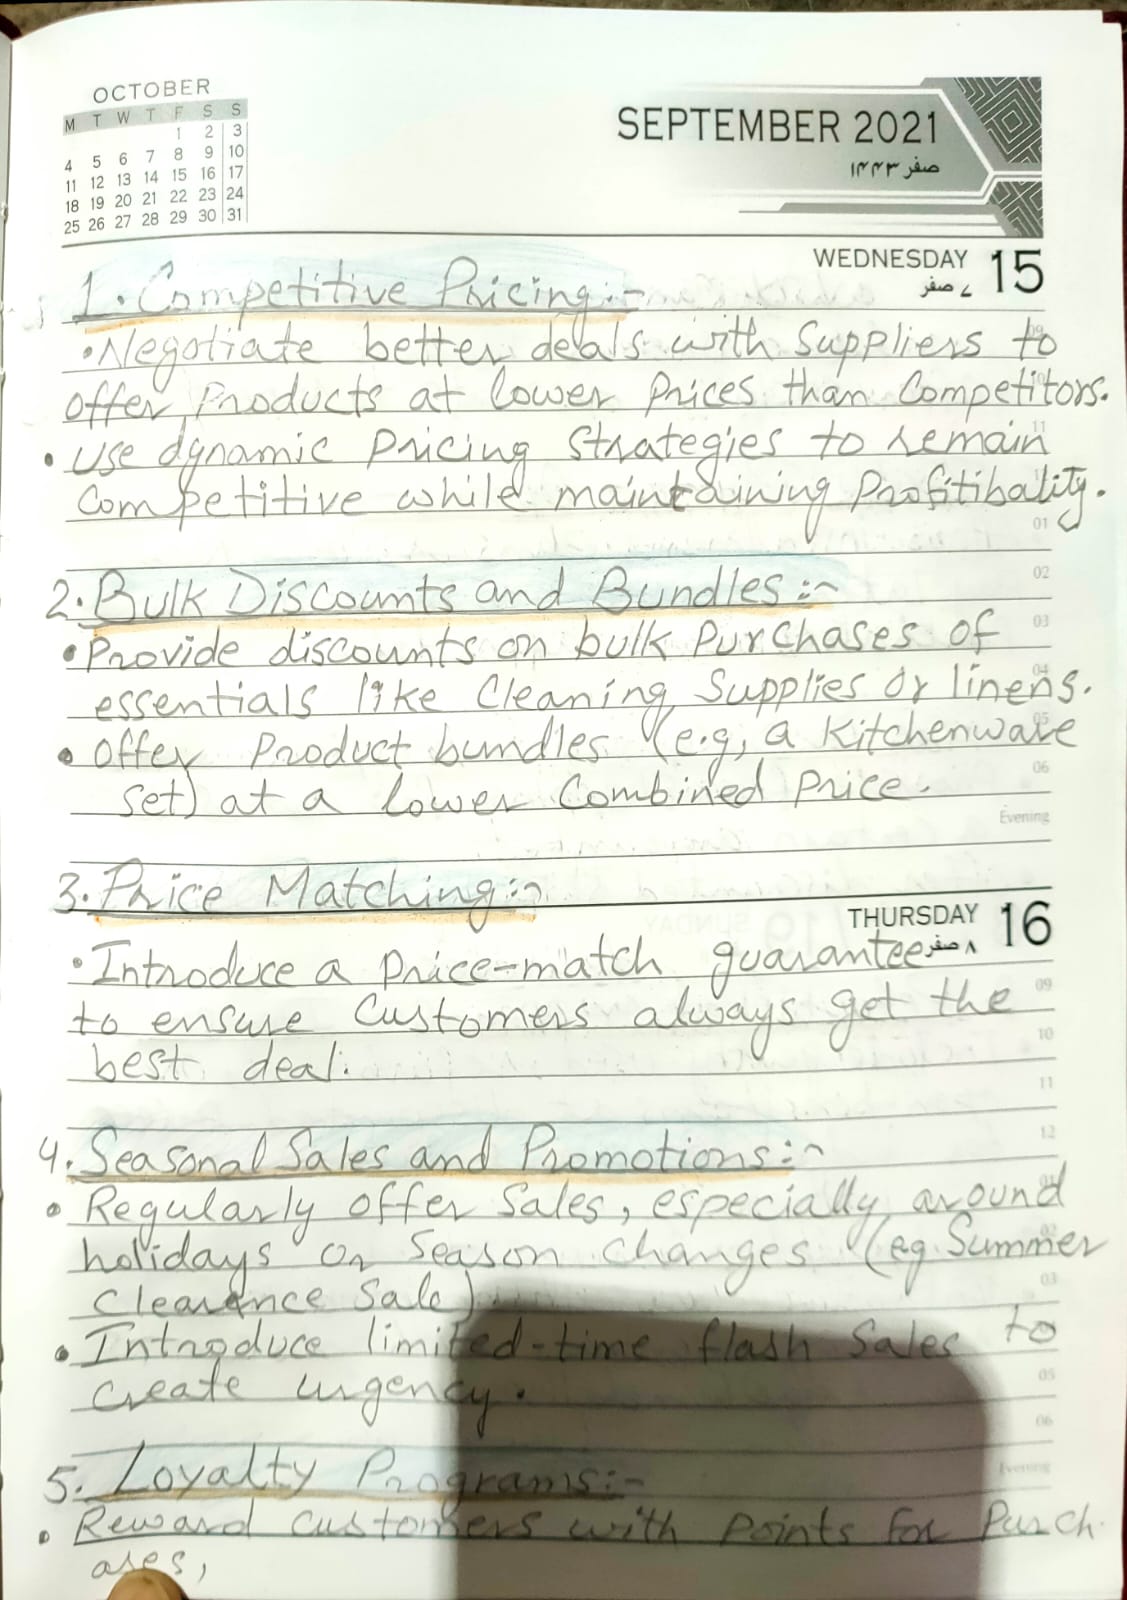 OCTOBER
M T W T F S S
1 2 3
4 5 6 7 8 9 10
11 12 13 14 15 16 17
18 19 20 21 22 23 24
25 26 27 28 29 30 31
SEPTEMBER 2021
صفر ۱۴۴۳
WEDNESDAY 15
۷ صفر
1. Competitive Pricing:-
• Negotiate better deals with Suppliers to
offer Products at lower Prices than Competitors.
• Use dynamic Pricing Strategies to remain
Competitive while maintaining Profitibality.
2. Bulk Discounts and Bundles:~
• Provide discounts on bulk Purchases of
essentials like Cleaning Supplies or linens.
• Offer Product bundles (e.g, a Kitchenware
Set) at a lower Combined Price.
3. Price Matching:~
THURSDAY 16
۸ صفر
• Introduce a Price-match guarantee
to ensure Customers always get the
best deal.
4. Seasonal Sales and Promotions:~
• Regularly offer Sales, especially around
holidays or Season Changes (eg Summer
Clearance Sale)
• Introduce limited-time flash Sales to
Create urgency.
5. Loyalty Programs:-
• Reward Customers with Points for Purch-
ases,
09
11
01
02
03
04
05
06
Evening
09
10
11
12
02
03
05
06
Evening